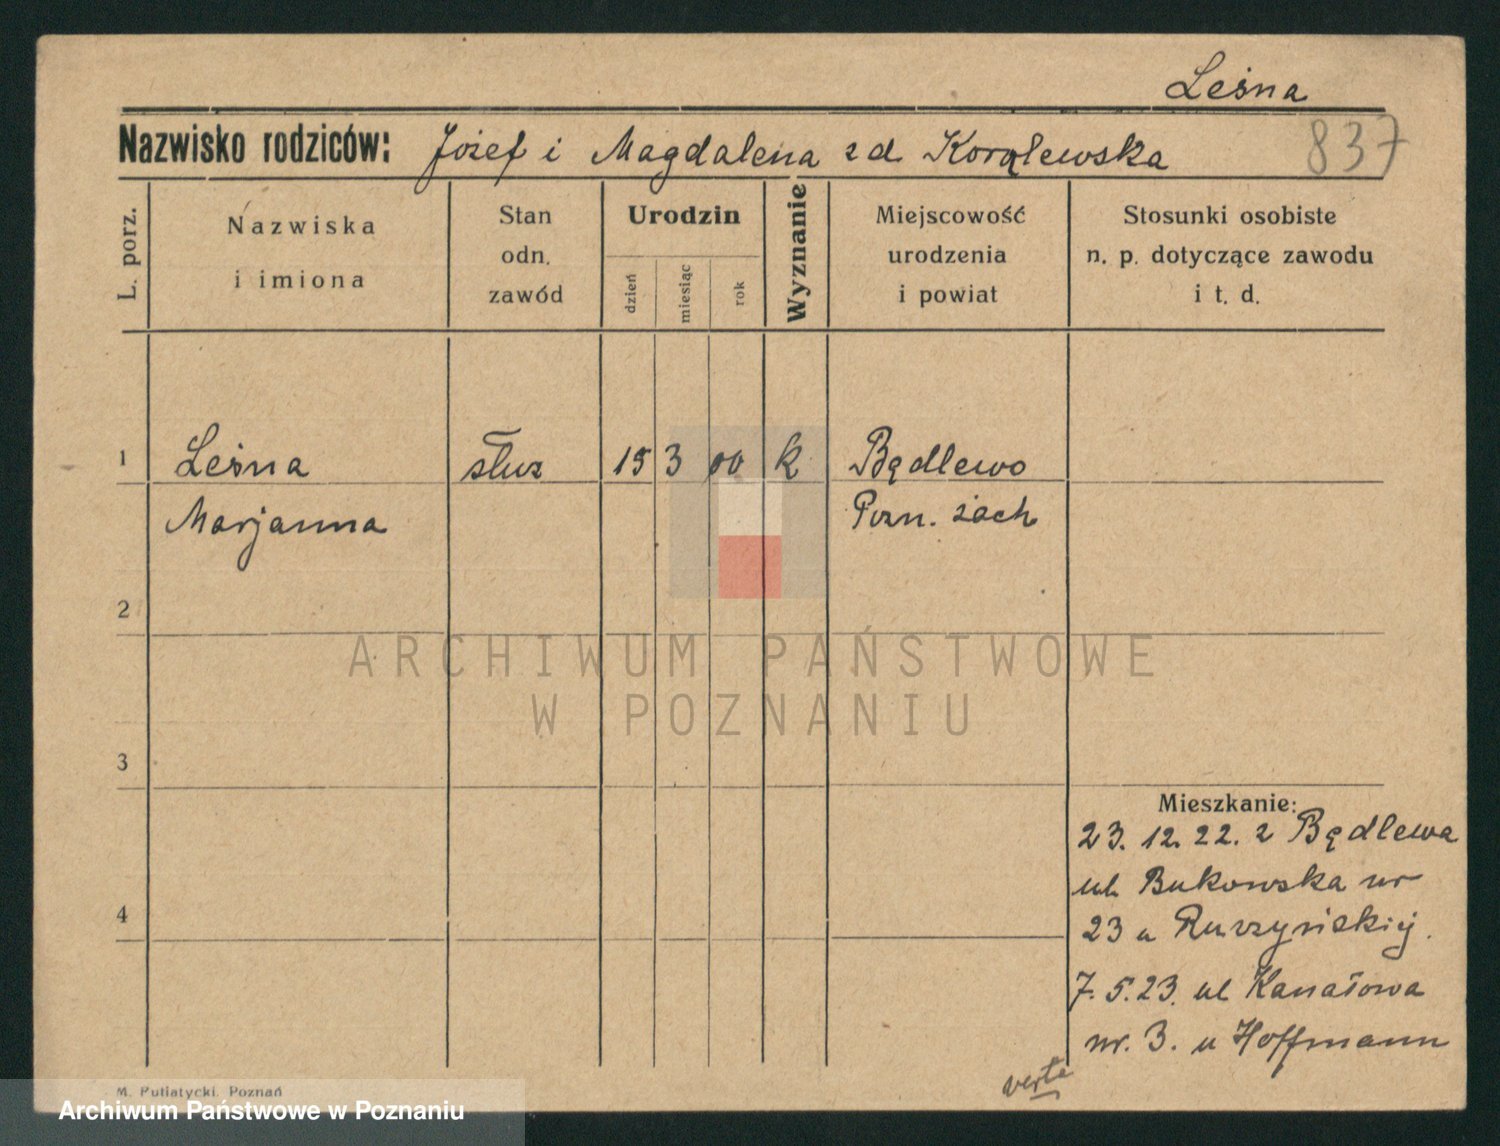 Leśna
Nazwisko rodziców: Józef i Magdalena z d. Korąlewska 837
L. porz.
Nazwiska
i imiona
Stan
odn.
zawód
Urodzin
dzień
miesiąc
rok
Wyznanie
Miejscowość
urodzenia
i powiat
Stosunki osobiste
n. p. dotyczące zawodu
i t. d.
1 Leśna służ 15 3 00 k Będlewo
Marjanna Pozn. zach
2
3
4
ARCHIWUM PAŃSTWOWE
W POZNANIU
Mieszkanie:
23. 12. 22. z Będlewa
ul. Bukowska nr
23 u Ruszyńskiej.
7. 5. 23. ul Kanałowa
nr. 3. u Hoffmann
verte
M. Putiatycki. Poznań
Archiwum Państwowe w Poznaniu